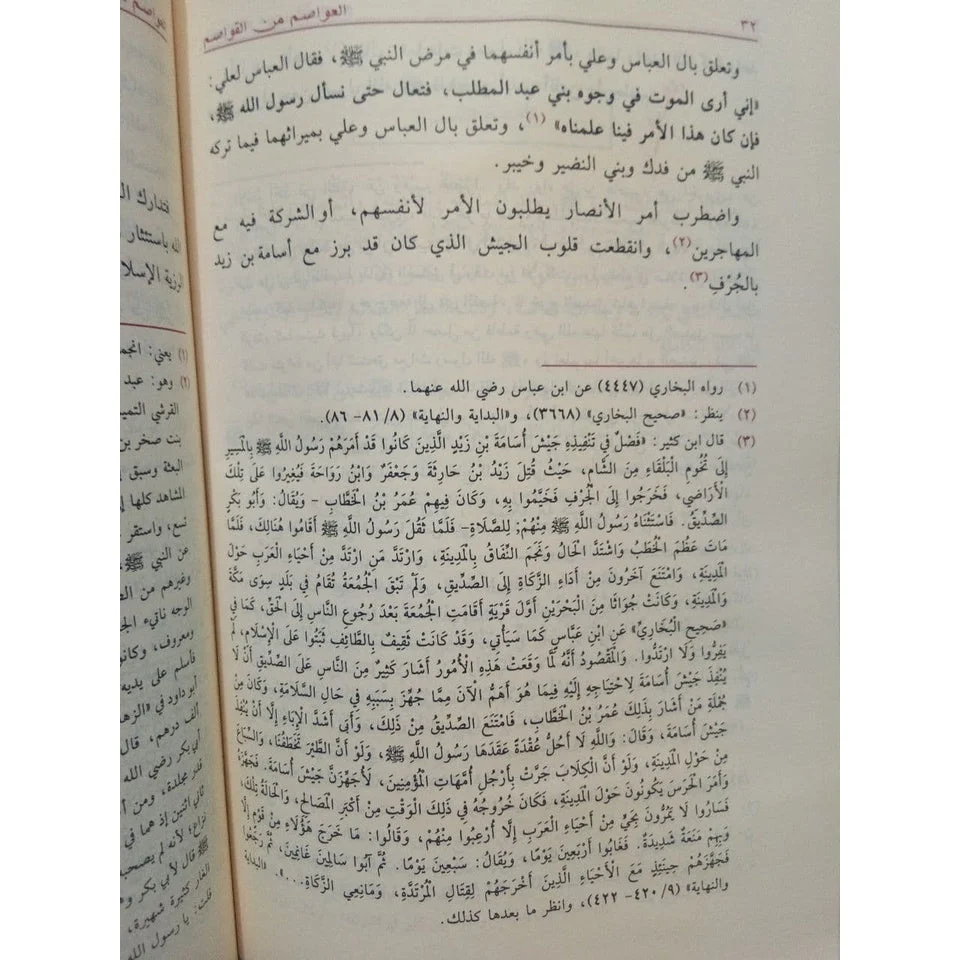 ٣٢
العواصم من القواصم
وتعلق بال العباس وعلي بأمر أنفسهما في مرض النبي ﷺ، فقال العباس لعلي:
«إني أرى الموت في وجوه بني عبد المطلب، فتعال حتى نسأل رسول الله ﷺ،
فإن كان هذا الأمر فينا علمناه» (١)، وتعلق بال العباس وعلي بميراثهما فيما تركه
النبي ﷺ من فدك وبني النضير وخيبر.
واضطرب أمر الأنصار يطلبون الأمر لأنفسهم، أو الشركة فيه مع
المهاجرين(٢)، وانقطعت قلوب الجيش الذي كان قد برز مع أسامة بن زيد
بالجُرْفِ(٣).
(١) رواه البخاري (٤٤٤٧) عن ابن عباس رضي الله عنهما.
(٢) ينظر: «صحيح البخاري» (٣٦٦٨)، و«البداية والنهاية» (٨/ ٨١- ٨٦).
(٣) قال ابن كثير: «فَصْلٌ فِي تَنْفِيذِهِ جَيْشَ أُسَامَةَ بْنِ زَيْدٍ الَّذِينَ كَانُوا قَدْ أَمَرَهُمْ رَسُولُ اللَّهِ ﷺ بِالْمَسِيرِ
إِلَى تُخُومِ الْبَلْقَاءِ مِنَ الشَّامِ، حَيْثُ قُتِلَ زَيْدُ بْنُ حَارِثَةَ وَجَعْفَرٌ وَابْنُ رَوَاحَةَ فَيُغِيرُوا عَلَى تِلْكَ
الْأَرَاضِي، فَخَرَجُوا إِلَى الْجُرْفِ فَخَيَّمُوا بِهِ، وَكَانَ فِيهِمْ عُمَرُ بْنُ الْخَطَّابِ - وَيُقَالُ: وَأَبُو بَكْرٍ
الصِّدِّيقُ. فَاسْتَثْنَاهُ رَسُولُ اللَّهِ ﷺ مِنْهُمْ؛ لِلصَّلَاةِ- فَلَمَّا ثَقُلَ رَسُولُ اللَّهِ ﷺ أَقَامُوا هُنَالِكَ، فَلَمَّا
مَاتَ عَظُمَ الْخَطْبُ وَاشْتَدَّ الْحَالُ وَنَجَمَ النِّفَاقُ بِالْمَدِينَةِ، وَارْتَدَّ مَنِ ارْتَدَّ مِنْ أَحْيَاءِ الْعَرَبِ حَوْلَ
الْمَدِينَةِ، وَامْتَنَعَ آخَرُونَ مِنْ أَدَاءِ الزَّكَاةِ إِلَى الصِّدِّيقِ، وَلَمْ تَبْقَ الْجُمُعَةُ تُقَامُ فِي بَلَدٍ سِوَى مَكَّةَ
وَالْمَدِينَةِ، وَكَانَتْ جُوَاثَا مِنَ الْبَحْرَيْنِ أَوَّلَ قَرْيَةٍ أَقَامَتِ الْجُمُعَةَ بَعْدَ رُجُوعِ النَّاسِ إِلَى الْحَقِّ، كَمَا فِي
«صَحِيحِ الْبُخَارِيِّ» عَنِ ابْنِ عَبَّاسٍ كَمَا سَيَأْتِي، وَقَدْ كَانَتْ ثَقِيفٌ بِالطَّائِفِ ثَبَتُوا عَلَى الْإِسْلَامِ، لَمْ
يَفِرُّوا وَلَا ارْتَدُّوا. وَالْمَقْصُودُ أَنَّهُ لَمَّا وَقَعَتْ هَذِهِ الْأُمُورُ أَشَارَ كَثِيرٌ مِنَ النَّاسِ عَلَى الصِّدِّيقِ أَنْ لَا
يُنْفِذَ جَيْشَ أُسَامَةَ لِاحْتِيَاجِهِ إِلَيْهِ فِيمَا هُوَ أَهَمُّ الْآنَ مِمَّا جُهِّزَ بِسَبَبِهِ فِي حَالِ السَّلَامَةِ، وَكَانَ مِنْ
جُمْلَةِ مَنْ أَشَارَ بِذَلِكَ عُمَرُ بْنُ الْخَطَّابِ، فَامْتَنَعَ الصِّدِّيقُ مِنْ ذَلِكَ، وَأَبَى أَشَدَّ الْإِبَاءِ إِلَّا أَنْ يُنْفِذَ
جَيْشَ أُسَامَةَ، وَقَالَ: وَاللَّهِ لَا أَحُلُّ عُقْدَةً عَقَدَهَا رَسُولُ اللَّهِ ﷺ، وَلَوْ أَنَّ الطَّيْرَ تَخَطَّفُنَا، وَالسِّبَاعَ
مِنْ حَوْلِ الْمَدِينَةِ، وَلَوْ أَنَّ الْكِلَابَ جَرَّتْ بِأَرْجُلِ أُمَّهَاتِ الْمُؤْمِنِينَ، لَأُجَهِّزَنَّ جَيْشَ أُسَامَةَ. فَجَهَّزَهُ
وَأَمَرَ الْحَرَسَ يَكُونُونَ حَوْلَ الْمَدِينَةِ، فَكَانَ خُرُوجُهُ فِي ذَلِكَ الْوَقْتِ مِنْ أَكْبَرِ الْمَصَالِحِ، وَالْحَالَةُ تِلْكَ،
فَسَارُوا لَا يَمُرُّونَ بِحَيٍّ مِنْ أَحْيَاءِ الْعَرَبِ إِلَّا أُرْعِبُوا مِنْهُمْ، وَقَالُوا: مَا خَرَجَ هَؤُلَاءِ مِنْ قَوْمٍ إِلَّا
وَبِهِمْ مَنَعَةٌ شَدِيدَةٌ. فَغَابُوا أَرْبَعِينَ يَوْمًا، وَيُقَالُ: سَبْعِينَ يَوْمًا. ثُمَّ آبُوا سَالِمِينَ غَانِمِينَ، ثُمَّ رَجَعُوا
فَجَهَّزَهُمْ حِينَئِذٍ مَعَ الْأَحْيَاءِ الَّذِينَ أَخْرَجَهُمْ لِقِتَالِ الْمُرْتَدَّةِ، وَمَانِعِي الزَّكَاةِ...». «البداية
والنهاية» (٩/ ٤٢٠- ٤٢٢)، وانظر ما بعدها كذلك.
فتدارك
الله باستئثار
الرزية الإسلا
(١) يعني: انجم
(٢) وهو: عبد
القرشي التميم
بنت صخر بن
البعثة وسبق
المشاهد كلها
تسع، واستقر
عن النبي ﷺ
وغيرهم من
الوجه ناتيء
ومعروف، وكانو
فأسلم على يديه
أبو داود في «الزهد
ألف درهم، قال
أبي بكر رضي الله
مجلدة، ومن
ثاني اثنين إذ هما في
لأنه لم يصحب
ﷺ قال لأبي بكر
الغار كثيرة شهيرة،
قلت: يا رسول الله